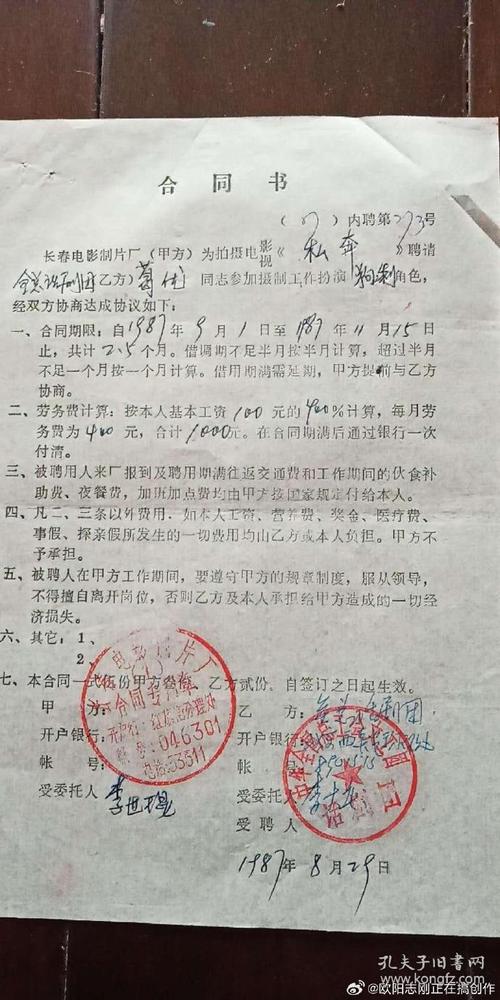 合同书
(87)内聘第273号
长春电影制片厂(甲方)为拍摄电影视《私奔》聘请
全总话剧团乙方)葛优 同志参加摄制工作扮演 角色,
经双方协商达成协议如下:
一、合同期限:自1987年9月1日至1987年11月15日
止,共计2.5个月。借调期不足半月按半月计算,超过半月
不足一个月按一个月计算。借用期满需延期,甲方提前与乙方
协商。
二、劳务费计算:按本人基本工资100元的400%计算,每月劳
务费为400元,合计1000元。在合同期满后通过银行一次
付清。
三、被聘用人来厂报到及聘用期满往返交通费和工作期间的伙食补
助费、夜餐费,加班加点费均由甲方按国家规定付给本人。
四、凡二、三条以外费用,如本人工资、营养费、奖金、医疗费、
事假、探亲假所发生的一切费用均由乙方或本人负担。甲方不
予承担。
五、被聘人在甲方工作期间,要遵守甲方的规章制度,服从领导,
不得擅自离开岗位,否则乙方及本人承担给甲方造成的一切经
济损失。
六、其它:1、
2、
七、本合同一式 份甲方叁份,乙方贰份,自签订之日起生效。
甲方:
开户银行:
帐号:
受委托人
李世
电影制片厂
合同专用章
开户行:
帐号:046301
电话:53311
乙方:全总话剧团
开户银行:
帐号:
受委托人
受聘人
话剧团
1987年8月29日
孔夫子旧书网
www.kongfz.com
@欧阳志刚正在搞创作